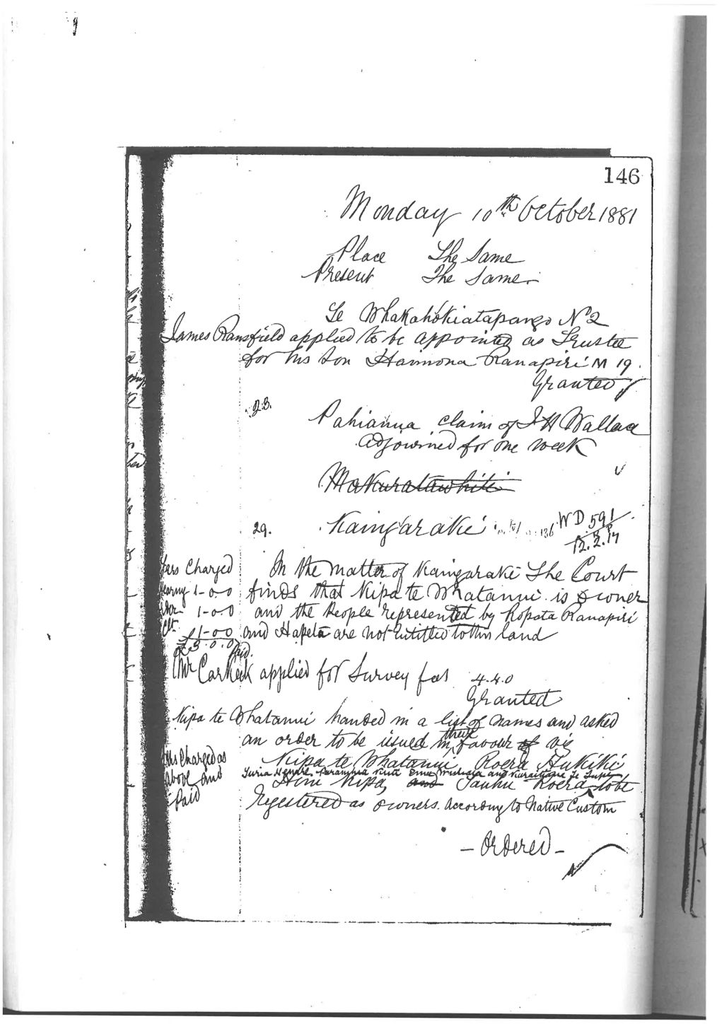 146
Monday 10th October 1881
Place The Same
Present The Same
Te Whakahokiatapango No 2
James Ransfield applied to be appointed as Trustee
for his son Haimona Ranapiri M 19.
Granted
23. Pahianua claim of J H Wallace
adjourned for one week
Makuratawhiti
29. Kaingaraki WD 591
12.2.17
Fees Charged In the matter of Kaingaraki The Court
1-0-0 finds that Nipa te Whatanui is owner
1-0-0 and the People represented by Ropata Ranapiri
1-0-0 and Hapeta are not entitled to this land
£3.0.0
Paid
Mr Carkeek applied for Survey fees 4.4.0
Granted
Nipa te Whatanui handed in a list of names and asked
an order to be issued in their favour viz
Fees Charged as Nipa te Whatanui Roera Hukiki
above and
Hini Nipa and Tauhu Roera to be
Paid registered as owners. According to Native Custom
- Ordered -